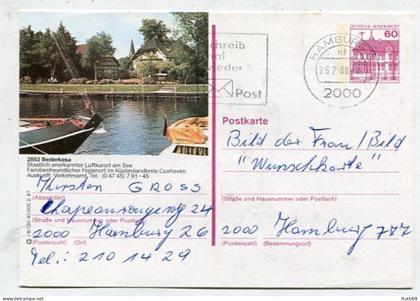 DEUTSCHE BUNDESPOST
60
HAMBURG
2000
Post
Postkarte
2852 Bederkesa
Staatlich anerkannter Luftkurort am See
Familienfreundlicher Ferienort im Küstenlandkreis Cuxhaven
Auskunft: Verkehrsamt, Tel.: (0 47 45) 7 91-45
Bild der Frau / Bild
"Wunschkarte"
Thorsten GROSS
(Absender)
Chapeaurougeweg 24
(Straße und Hausnummer oder Postfach)
2000 Hamburg 26
(Postleitzahl) (Ort)
Tel.: 210 14 29
(Straße und Hausnummer oder Postfach)
2000 Hamburg 777
(Postleitzahl) (Bestimmungsort)